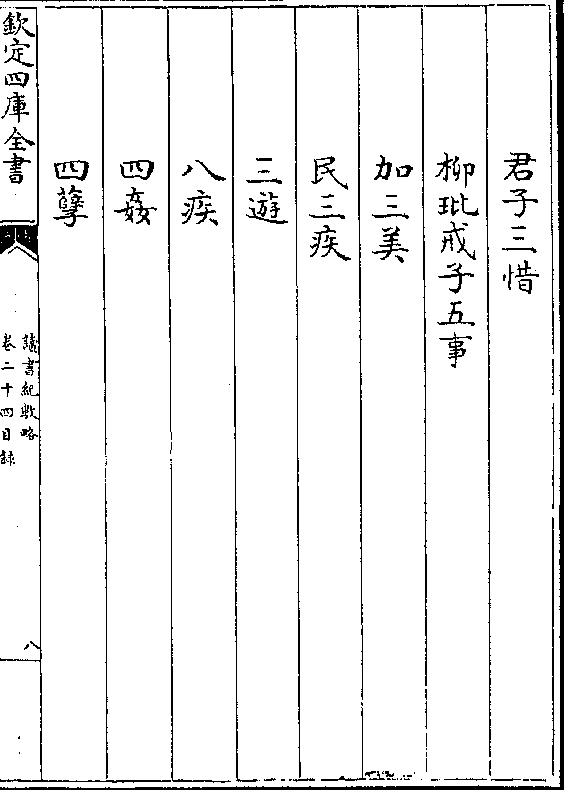 君子三惜
柳玭戒子五事
加三美
民三疾
三遊
八疾
四姦
四孽
欽定四庫全書
讀書紀數略
卷二十四目錄
八